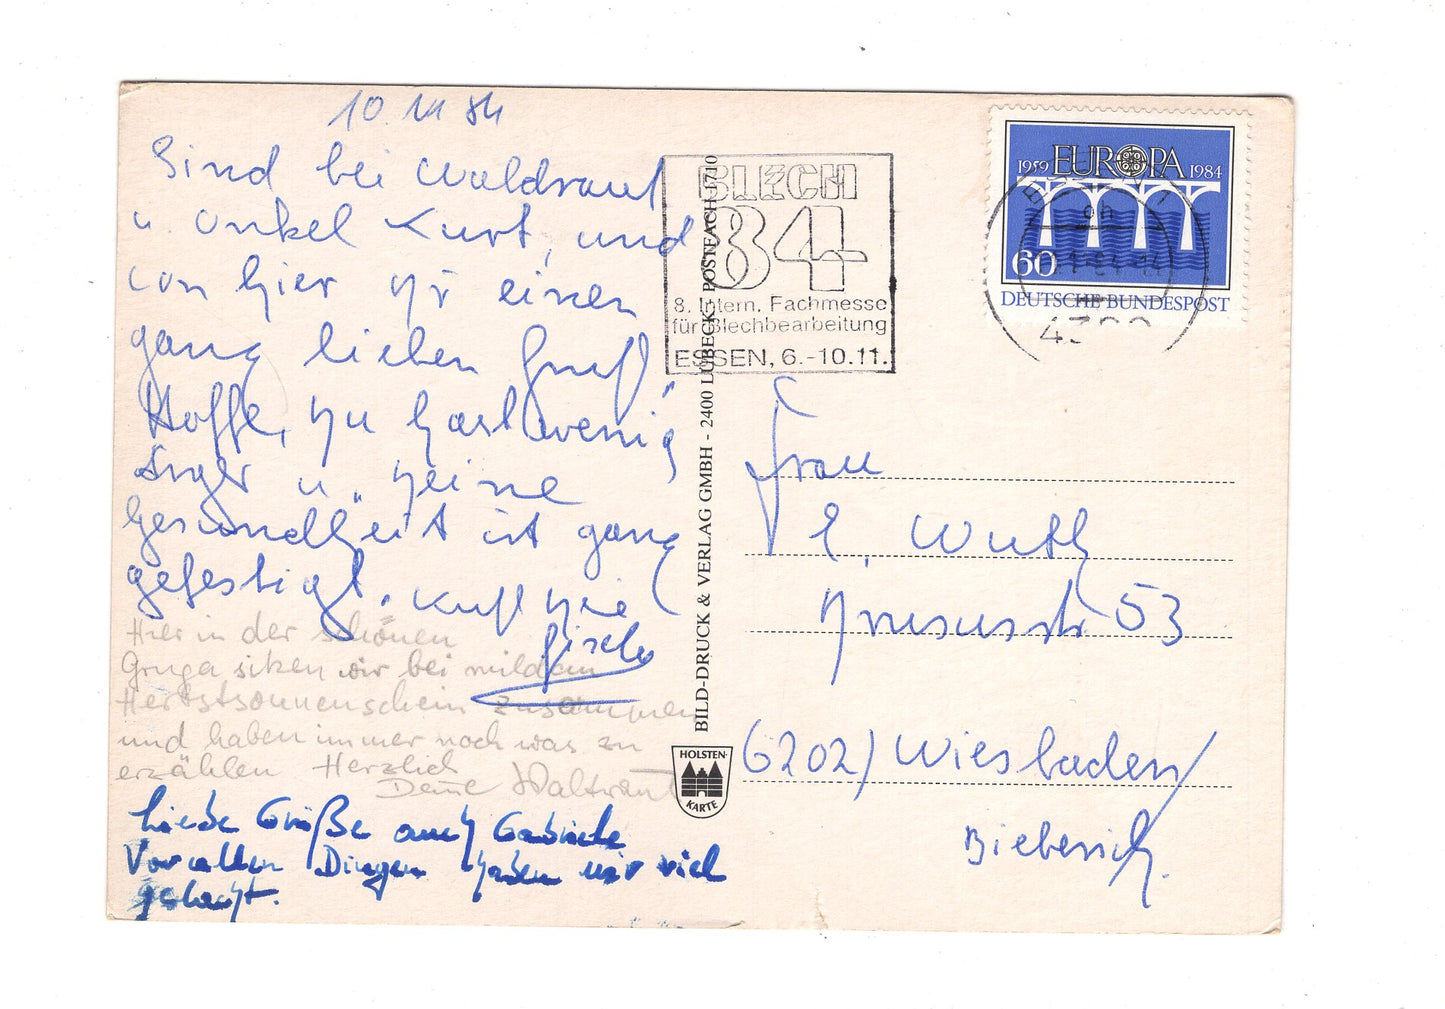 10.11.84
Sind bei Waldraut
u. Onkel Kurt, und
von hier Dir einen
ganz lieben Gruß,
Hoffe, Du hast wenig
Ärger u. Deine
Gesundheit ist ganz
gefestigt.
Gisela
Hier in der schönen
Gruga sitzen wir bei mildem
Herbstsonnenschein zusammen
und haben immer noch was zu
erzählen Herzlich
Deine Waltraut
Liebe Grüße auch Gabriele
Vor allen Dingen haben wir viel
gelacht.
BILD-DRUCK & VERLAG GMBH - 2400 LÜBECK - POSTFACH 1710
HOLSTEN-
KARTE
BLECH
84
8. Intern. Fachmesse
für Blechbearbeitung
ESSEN, 6.-10.11.
1959 EUROPA 1984
60
DEUTSCHE BUNDESPOST
Frau
E. Wuth
Drususstr 53
6202) Wiesbaden/
Bieberich.